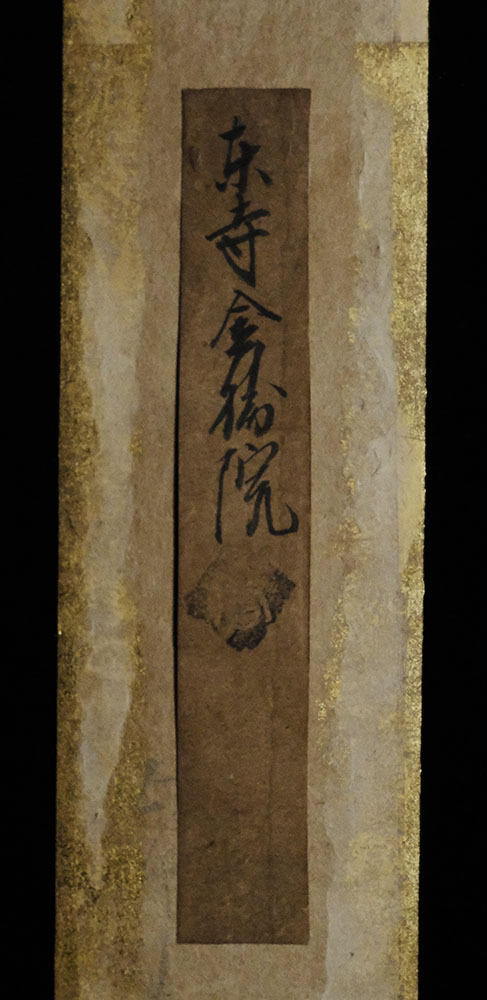 東寺金勝院